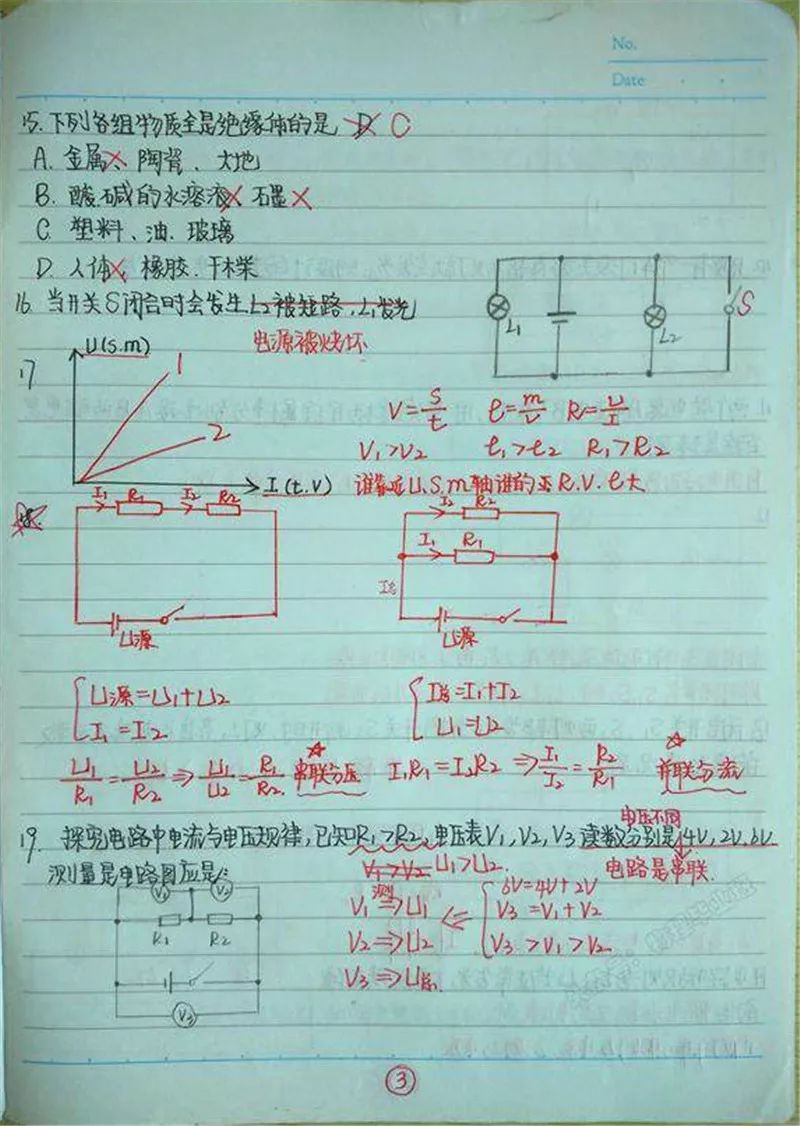 No.
Date
15. 下列各组物质全是绝缘体的是 D C
A. 金属、陶瓷、大地
B. 酸.碱的水溶液、石墨
C. 塑料、油.玻璃
D. 人体、橡胶.干木柴
16. 当开关S闭合时会发生L2被短路,L1发光
电源被烧坏
L1 L2 S
17
U(s.m)
1
2
I(t.V)
V=s/t ρ=m/v R=U/I
V1>V2 ρ1>ρ2 R1>R2
谁靠近U.S.m轴谁的R.V.ρ大
18.
I1 R1 I2 R2
U源
I2 R2
I1 R1
I总
U源
U源=U1+U2
I1=I2
U1/R1=U2/R2⇒U1/U2=R1/R2 串联分压
I总=I1+I2
U1=U2
I1R1=I2R2⇒I1/I2=R2/R1 并联分流
电压不同
19. 探究电路中电流与电压规律,已知R1>R2,电压表V1,V2,V3读数分别是4V,2V,6V
测量是电路图应是
V1>V2 U1>U2. 电路是串联.
测
V1⇒U1
V2⇒U2
V3⇒U总.
6V=4V+2V
V3=V1+V2
V3>V1>V2
V1 V2
R1 R2
V3
③